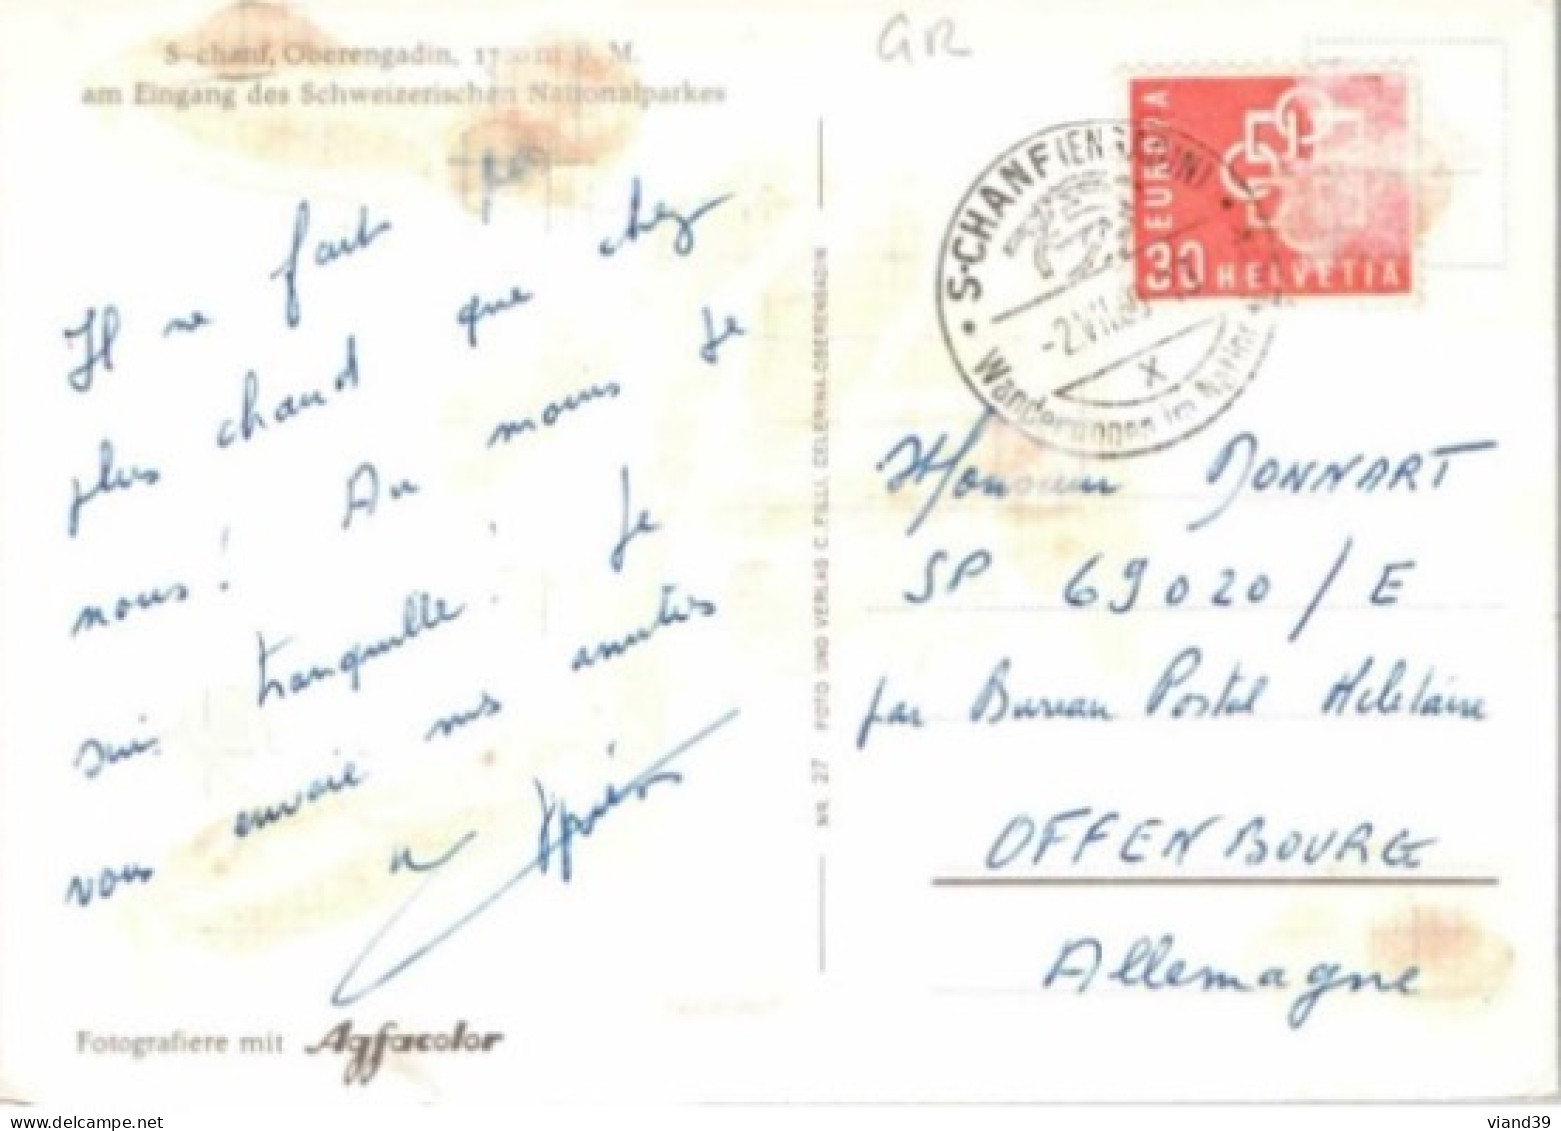 S-chanf, Oberengadin, 1700 m ü. M.
am Eingang des Schweizerischen Nationalparkes
GR
Il ne fait pas
plus chaud que chez
nous! Au moins je
suis tranquille! Je
vous envoie mes amitiés
Fotografiere mit Agfacolor
NR. 27 FOTO UND VERLAG C. FILLI, CELERINA-OBERENGADIN
EUROPA
30 HELVETIA
S-CHANF (ENGADIN)
-2.VII.
X
Wanderungen im
Monsieur MONNART
SP 69020/E
par Bureau Postal Militaire
OFFENBOURG
Allemagne
viand39